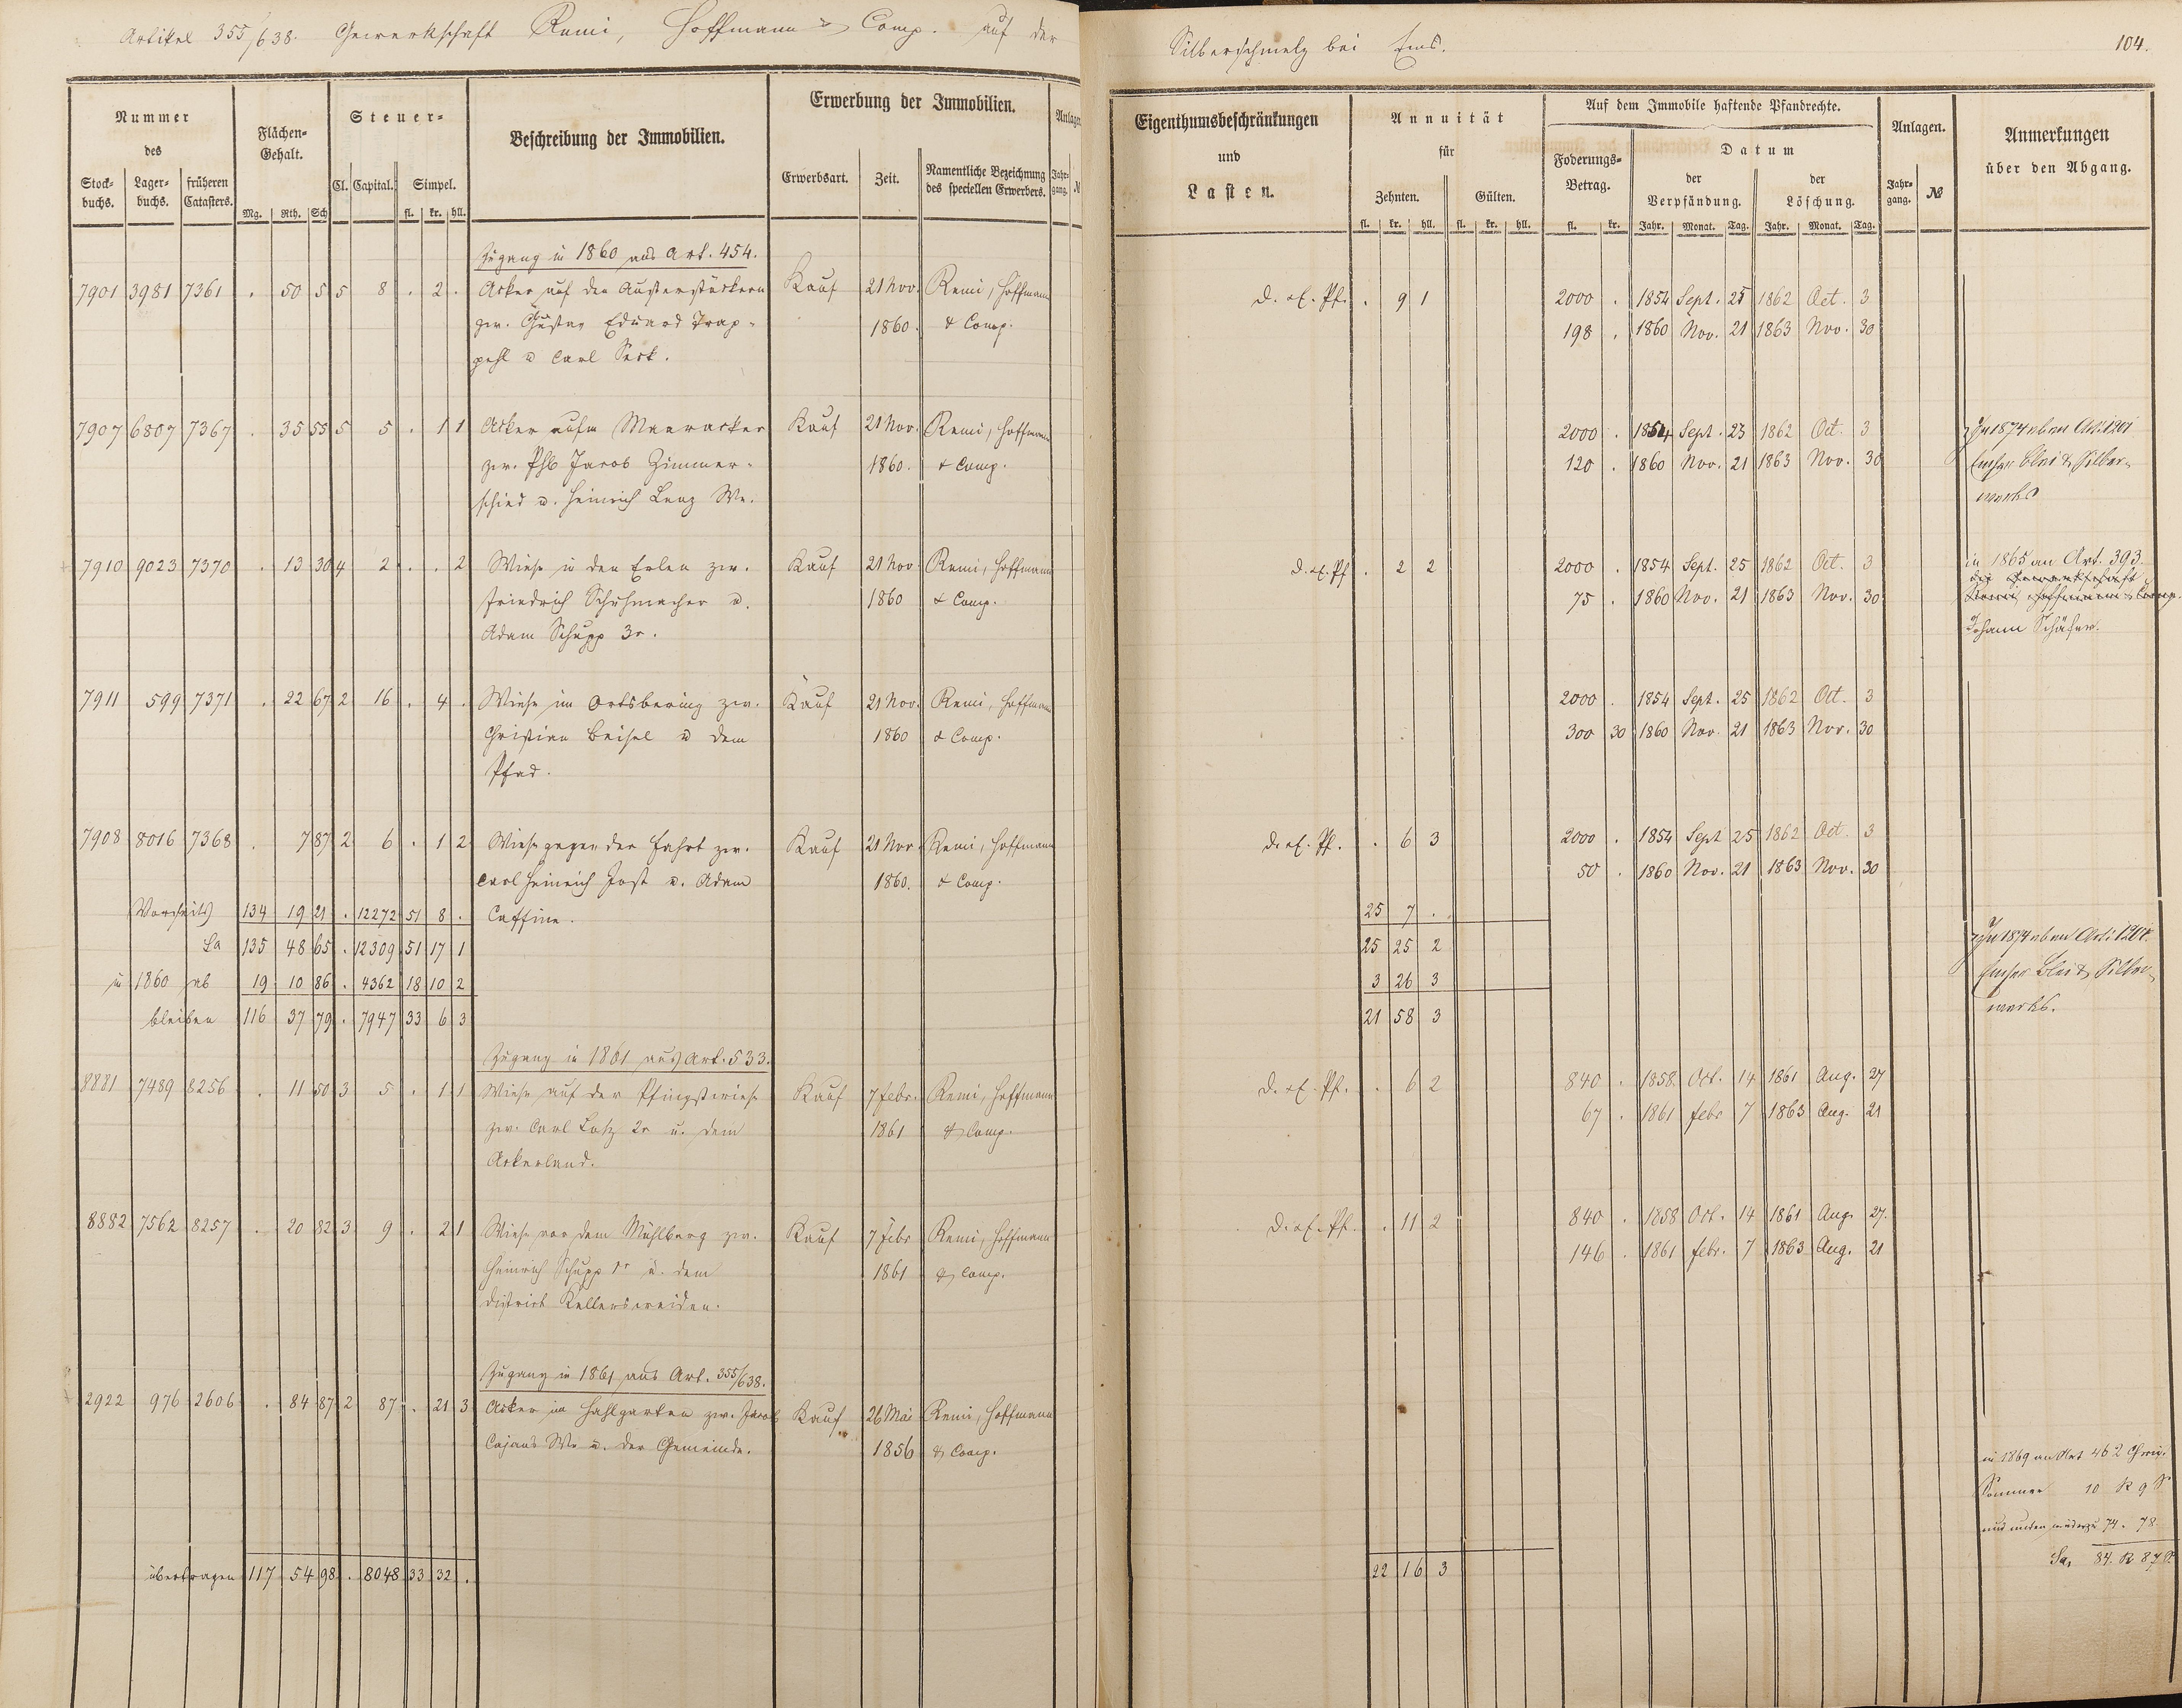 Artikel 355/638. Gewerkschaft Remi, Hoffmann & Comp. auf der
Silberschmelz bei Ems.
104.
Nummer des
Stock- buchs. Lager- buchs. früheren Catasters.
Flächen- Gehalt.
Mg. Rth. Sch
Steuer-
Cl. Capital. Simpel.
fl. kr. hll.
Beschreibung der Immobilien.
Erwerbung der Immobilien.
Erwerbsart. Zeit. Namentliche Bezeichnung des speciellen Erwerbers.
Anlagen
Jahr- gang. N
Eigenthumsbeschränkungen und Lasten.
Annuität für
Zehnten. Gülten.
fl. kr. hll. fl. kr. hll.
Auf dem Immobile haftende Pfandrechte.
Foderungs- Betrag.
fl. kr.
Datum
der Verpfändung. der Löschung.
Jahr. Monat. Tag. Jahr. Monat. Tag.
Anlagen.
Jahr- gang. №
Anmerkungen über den Abgang.
Zugang in 1860 aus Art. 454.
7901 3981 7361 . 50 5 5 8 . 2 . Acker auf den Austerstückern Kauf 21 Nov. Remi, Hoffmann D. &. Pf. . 9 1 2000 . 1854 Sept. 25 1862 Oct. 3
zw. Gustav Eduard Trap- 1860. & Comp. 198 . 1860 Nov. 21 1863 Nov. 30
pehl u Carl Seck.
7907 6807 7367 . 35 55 5 5 . 1 1 Acker aufm Maaracker Kauf 21 Nov. Remi, Hoffmann 2000 . 1854 Sept. 23 1862 Oct. 3 In 1874 ab an Art. 1201
zw. Phb Jacob Zimmer- 1860. & Comp. 120 . 1860 Nov. 21 1863 Nov. 30 Emser Blei & Silber-
schied u. Heinrich Lenz We. werks
7910 9023 7370 . 13 30 4 2 . . 2 Wiese in den Erlen zw. Kauf 21 Nov. Remi, Hoffmann D. &. Pf . 2 2 2000 . 1854 Sept. 25 1862 Oct. 3 in 1865 an Art. 393.
die Gewerkschaft
Friedrich Schuhmacher u. 1860 & Comp. 75 . 1860 Nov. 21 1863 Nov. 30 Remi, Hoffmann & Comp.
Adam Schupp 3r. Johann Schäfer.
7911 599 7371 . 22 67 2 16 . 4 . Wiese im Ortsbering zw. Kauf 21 Nov. Remi, Hoffmann 2000 . 1854 Sept. 25 1862 Oct. 3
Christian Beisel u dem 1860 & Comp. 300 30 1860 Nov. 21 1863 Nov. 30
Pfad.
7908 8016 7368 . 7 87 2 6 . 1 2 Wiese gegen der Fahrt zw. Kauf 21 Nov Remi, Hoffmann D. &. Pf. . 6 3 2000 . 1854 Sept 25 1862 Oct. 3
Carl Heinrich Jost u. Adam 1860. & Comp. 50 . 1860 Nov. 21 1863 Nov. 30
Vorseits 134 19 21 . 12272 51 8 . Caffine. 25 7 .
Sa 135 48 65 . 12309 51 17 1 25 25 2 In 1874 ab an Art. 1201.
in 1860 ab 19 10 86 . 4362 18 10 2 3 26 3 Emser Blei & Silber-
bleiben 116 37 79 . 7947 33 6 3 21 58 3 werks.
Zugang in 1861 aus Art. 533.
8881 7489 8256 . 11 50 3 5 . 1 1 Wiese auf der Pfingstwiese Kauf 7 Febr. Remi, Hoffmann D. &. Pf. . 6 2 840 . 1858 Oct. 14 1861 Aug. 27
zw. Carl Lotz 2r u. dem 1861 & Comp. 67 . 1861 Febr 7 1863 Aug. 21
Ackerland.
8882 7562 8257 . 20 82 3 9 . 2 1 Wiese vor dem Mühlberg zw. Kauf 7 Febr Remi, Hoffmann D. &. Pf. . 11 2 840 . 1858 Oct. 14 1861 Aug. 27.
Heinrich Schupp 1r u. dem 1861 & Comp. 146 . 1861 Febr. 7 1863 Aug. 21
District Kellersweiden.
Zugang in 1861 aus Art. 355/638.
2922 976 2606 . 84 87 2 87 . 21 3 Acker im Hahlgarten zw. Jacob Kauf 26 Mai Remi, Hoffmann
Cajans We u. der Gemeinde. 1856 & Comp. in 1869 an Art 462
Sommer 10 R 9 S
74. 78
übertragen 117 54 98 . 8048 33 32 . 22 16 3 Sa. 84. R 87